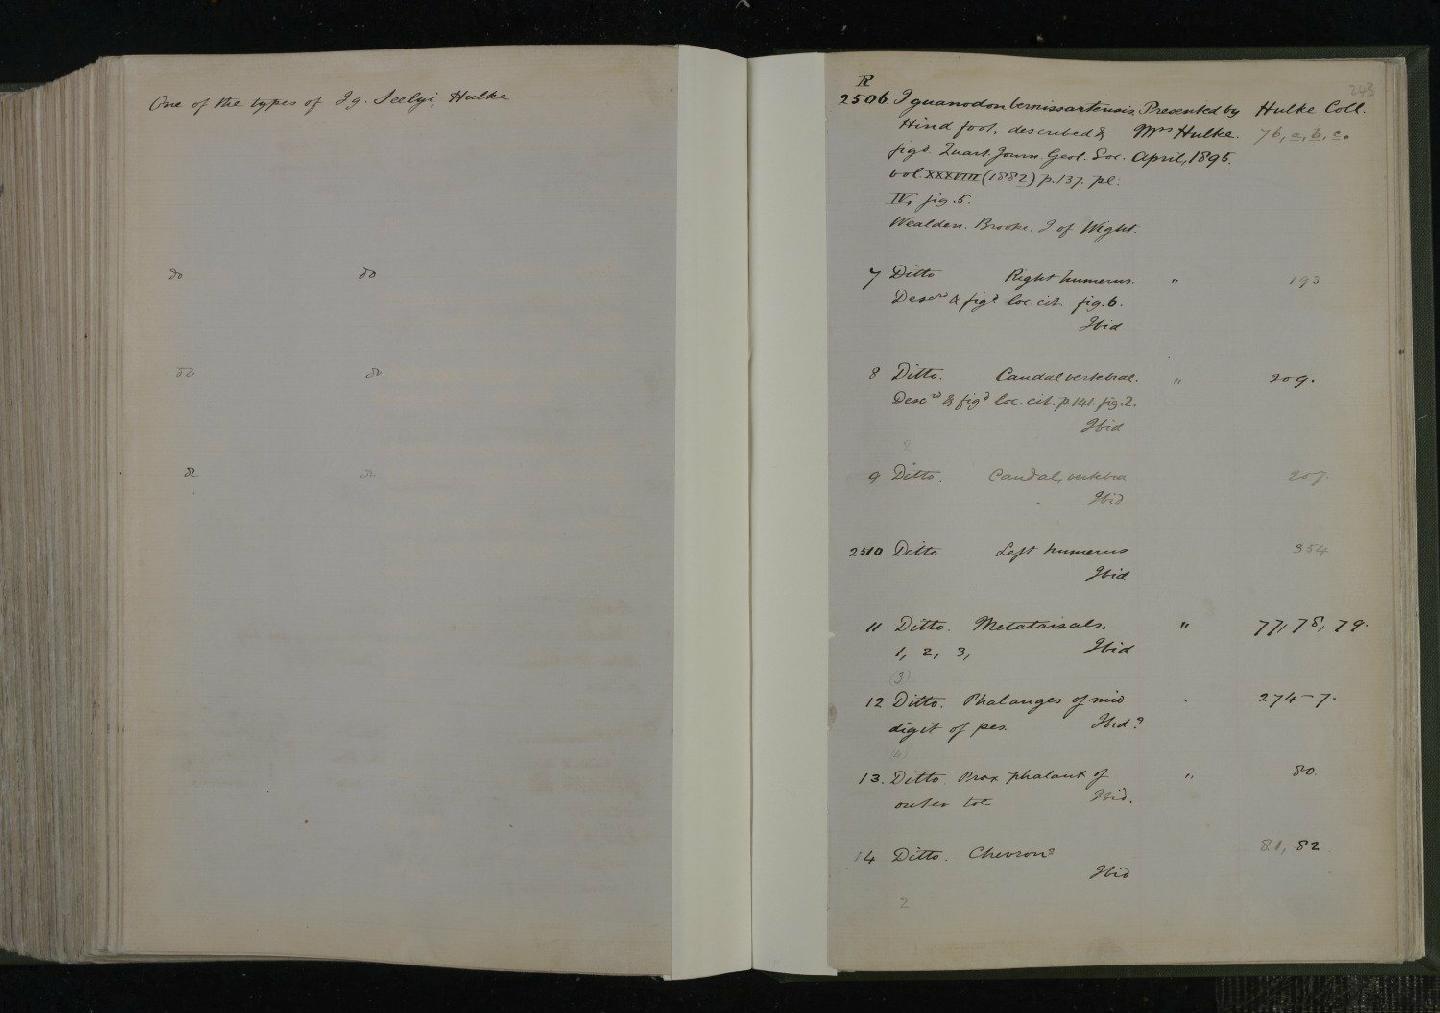 One of the types of Ig. Seelyi, Hulke
do do
do do
do do
243
R
2506 Iguanodon bernissartensis, Presented by Hulke Coll.
Hind foot, described & Mrs Hulke. 76, a, b, c.
figd. Quart. Journ. Geol. Soc. April, 1895.
vol. XXXVIII (1882) p. 137. pl.
IV, fig. 5.
Wealden. Brooke. I of Wight.
7 Ditto Right humerus. " 193
Descd & figd loc. cit. fig. 6.
Ibid
8 Ditto. Caudal vertebral. " 209.
Descd & figd loc. cit. p. 141. fig. 2.
Ibid
9 Ditto. Caudal, vertebra 207.
Ibid
2510 Ditto Left humerus 354
Ibid
11 Ditto. Metatarsals. " 77, 78, 79.
1, 2, 3, Ibid
(3)
12 Ditto. Phalanges of mid 274-7.
digit of pes. Ibid?
(4)
13. Ditto. Prox phalanx of " 80.
outer toe Ibid.
14 Ditto. Chevrons 81, 82
Ibid
2